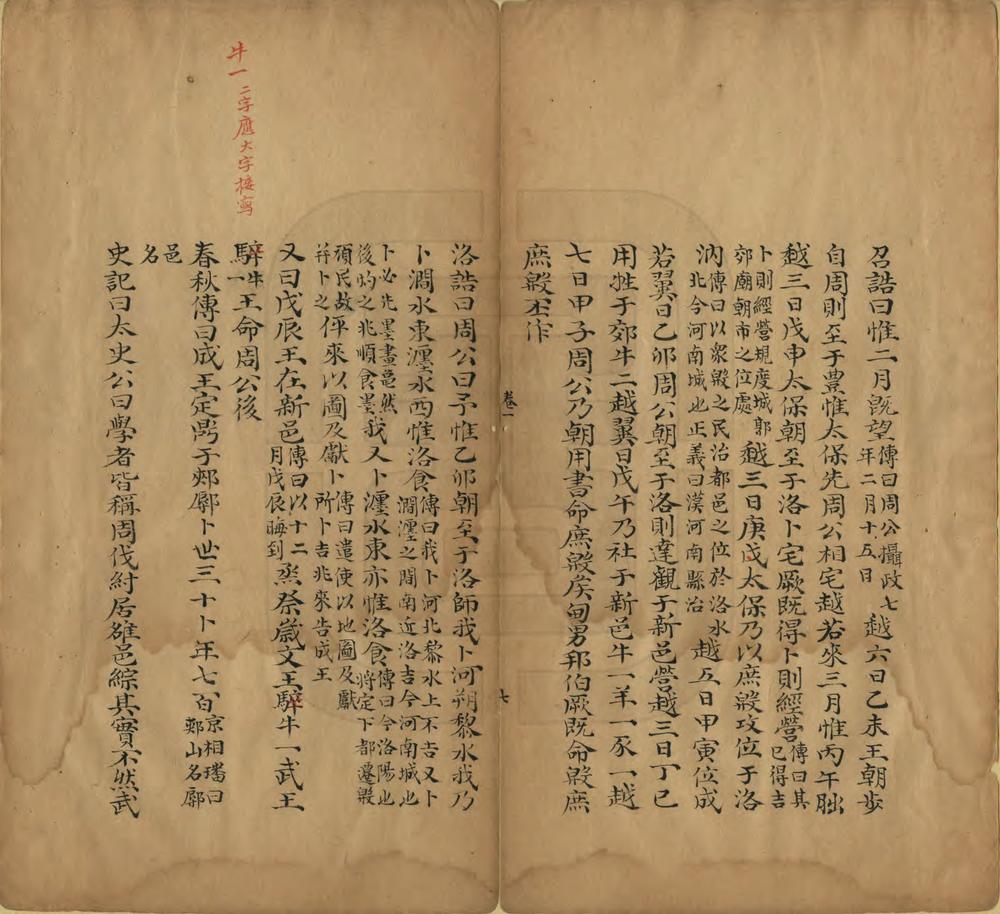 召誥曰惟二月既望傳曰周公攝政七年二月十五日越六日乙未王朝步
自周則至于豊惟太保先周公相宅越若來三月惟丙午朏
越三日戊申太保朝至于洛卜宅厥既得卜則經營傳曰其已得吉
卜則經營規度城郭郊廟朝市之位處越三日庚戌太保乃以庶殷攻位于洛
汭傳曰以衆殷之民治都邑之位於洛水北今河南城也正義曰漢河南縣治越五日甲寅位成
若翼日乙卯周公朝至于洛則達觀于新邑營越三日丁巳
用牲于郊牛二越翼日戊午乃社于新邑牛一羊一豕一越
七日甲子周公乃朝用書命庶殷矦甸男邦伯厥既命殷庶
庶殷丕作
卷一
七
洛誥曰周公曰予惟乙卯朝至于洛師我卜河朔黎水我乃
卜澗水東瀍水西惟洛食傳曰我卜河北黎水上不吉又卜澗瀍之間南近洛吉今河南城也
卜必先墨畫龜然後灼之兆順食墨我又卜瀍水東亦惟洛食傳曰今洛陽也將定下都遷殷
頑民故并卜之伻來以圖及獻卜傳曰遣使以地圖及獻所卜吉兆來告成王
又曰戊辰王在新邑傳曰以十二月戊辰晦到烝祭歲文王騂牛一武王
騂牛一王命周公後
春秋傳曰成王定鼎于郟鄏卜世三十卜年七百京相璠曰郟山名鄏
邑名
史記曰太史公曰學者皆稱周伐紂居雒邑綜其實不然武
牛一二字應大字接寫